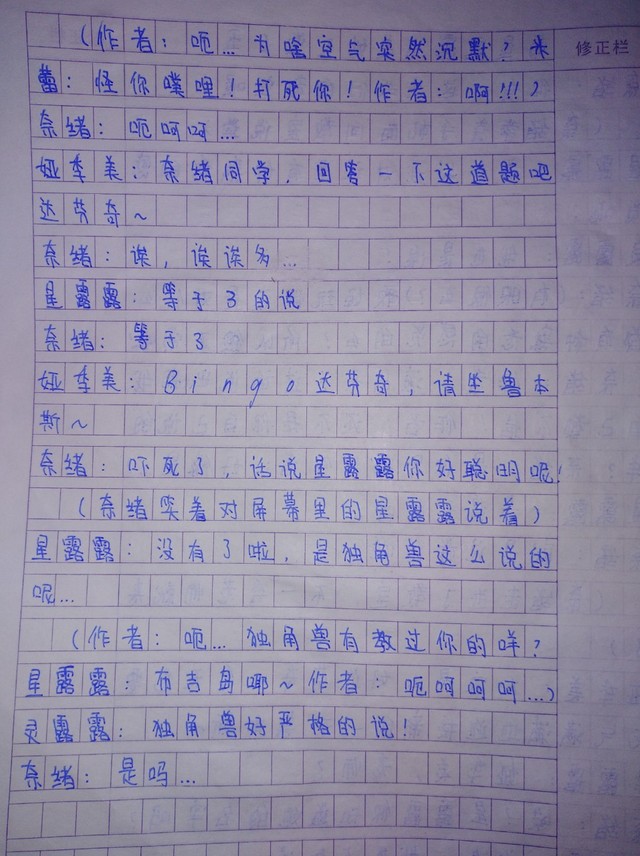 （作者：呃…为啥空气突然沉默？米
修正栏
蕾：怪你噗哩！打死你！作者：啊!!!）
奈绪：呃呵呵…
娅季美：奈绪同学，回答一下这道题吧
达芬奇~
奈绪：诶，诶诶多…
星露露：等于3的说
奈绪：等于3
娅季美：Bingo达芬奇，请坐鲁本
斯~
奈绪：吓死了，话说星露露你好聪明呢！
（奈绪笑着对屏幕里的星露露说着）
星露露：没有了啦，是独角兽这么说的
呢…
（作者：呃…独角兽有教过你的咩？
星露露：布吉岛哪~作者：呃呵呵呵…）
灵露露：独角兽好严格的说！
奈绪：是吗…